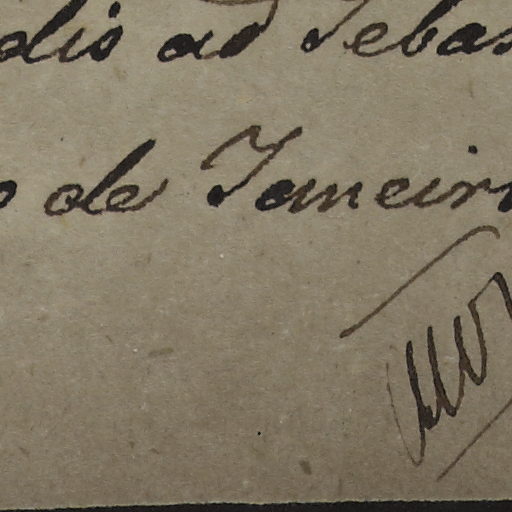 dio ao Sebas
o de Janeir